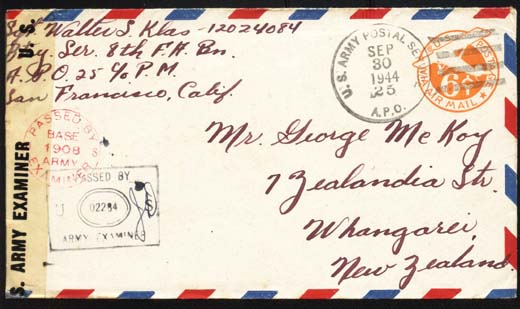 Walter S. Klas - 12024084
Ser. 8th F.A. Bn.
A.P.O. 25 c/o P.M.
San Francisco, Calif.
U.S. ARMY POSTAL SE
SEP
30
1944
25
A.P.O.
U.S. POSTAGE
6¢
VIA AIR MAIL
PASSED BY
BASE
1908
ARMY
EXAMINER
PASSED BY
U S
02284
ARMY EXAMINER
U. S.
S. ARMY EXAMINER
Mr. George McKoy
7 Zealandia Str.
Whangarei,
New Zealand.